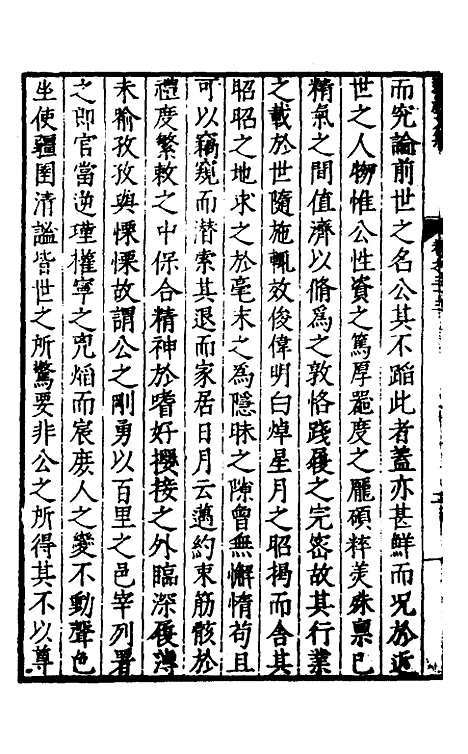 而究論前世之名公其不蹈此者蓋亦甚鮮而况於近
世之人物惟公性資之篤厚器度之龎碩粹美殊禀已
精氣之間值濟以脩爲之敦恪踐履之完密故其行業
之載於世隨施輒效俊偉明白焯星月之昭揭而舍其
昭昭之地求之於毫末之為隱昧之隙曾無懈惰苟且
可以竊窺而潜索其退而家居日月云邁約束筋骸於
禮度繁敕之中保合精神於嗜好攖接之外臨深履薄
未喻孜孜與慄慄故謂公之剛勇以百里之邑宰列署
之郎官當逆瑾權寧之兇熖而宸庶人之變不動聲色
坐使疆圉清謐皆世之所驚要非公之所得其不以尊